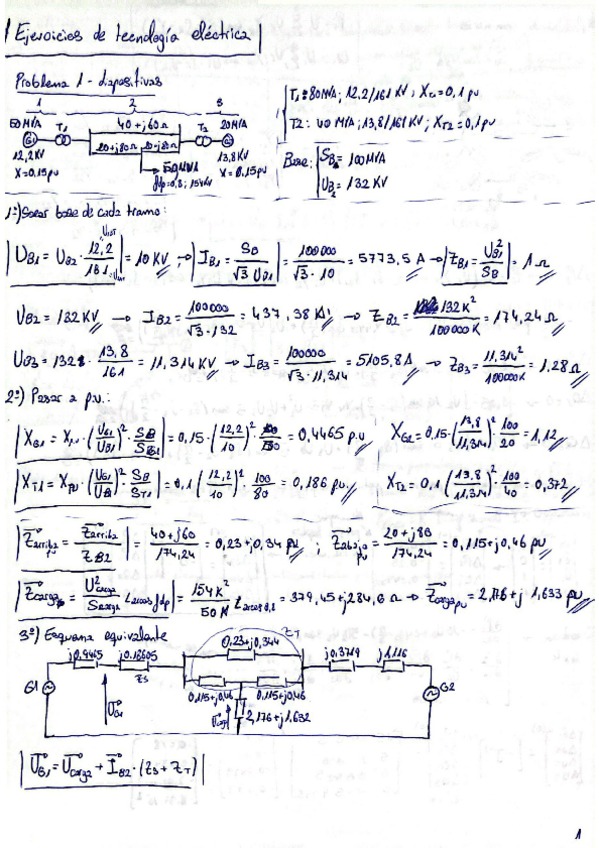 Ejercicios de tecnología eléctrica
Problema 1 - diapositivas
1 2 3
50MVA T1 40+j60Ω T2 20MVA
G1 20+j80Ω 20+j80Ω G2
12,2KV 50MVA 13,8KV
X=0,15pu fdp=0,8; 154KV X=0,15pu
T1: 80MVA; 12,2/161 KV; XT1=0,1pu
T2: 40 MVA; 13,8/161 KV; XT2=0,1pu
Base: SB=100MVA
UB2=132 KV
1º) Sacar base de cada tramo:
UB1 = UB2 · 12,2/161 = 10 KV → IB1 = SB/(√3 UB1) = 100000/(√3 · 10) = 5773,5 A → ZB1 = UB1²/SB = 1 Ω
UB2 = 132 KV → IB2 = 100000/(√3 · 132) = 437,38 A → ZB2 = 132K²/100000K = 174,24 Ω
UB3 = 132 · 13,8/161 = 11,314 KV → IB3 = 100000/(√3 · 11,314) = 5105,8 A → ZB3 = 11,314²/100000K = 1,28 Ω
2º) Pasar a p.u.:
XG1 = Xpu · (UG1/UB1)² · SB/SG1 = 0,15 · (12,2/10)² · = 0,4465 p.u XG2 = 0,15 · (13,8/11,314)² · 100/20 = 1,12
XT1 = Xpu · (UG1/UB1)² · SB/ST1 = 0,1 · (12,2/10)² · 100/80 = 0,186 pu. XT2 = 0,1 (13,8/11,314)² · 100/40 = 0,372
Zarriba pu = Zarriba/ZB2 = (40+j60)/174,24 = 0,23+j0,34 pu ; Zabajo pu = (20+j80)/174,24 = 0,115+j0,46 pu
Zcarga = U²carga/Scarga ∠arcos fdp = 154K²/50M ∠arcos0,8 = 379,45+j284,6 Ω → Zcarga pu = 2,176+j 1,633 pu
3º) Esquema equivalente
j0,4465 j0,18605 0,23+j0,344 ZT j0,3719 j1,116
G1 ZS G2
UG1 0,115+j0,46 0,115+j0,46
Ucarga 2,176+j1,632
UG1 = Ucarga + IB2 · (ZS + ZT)
1